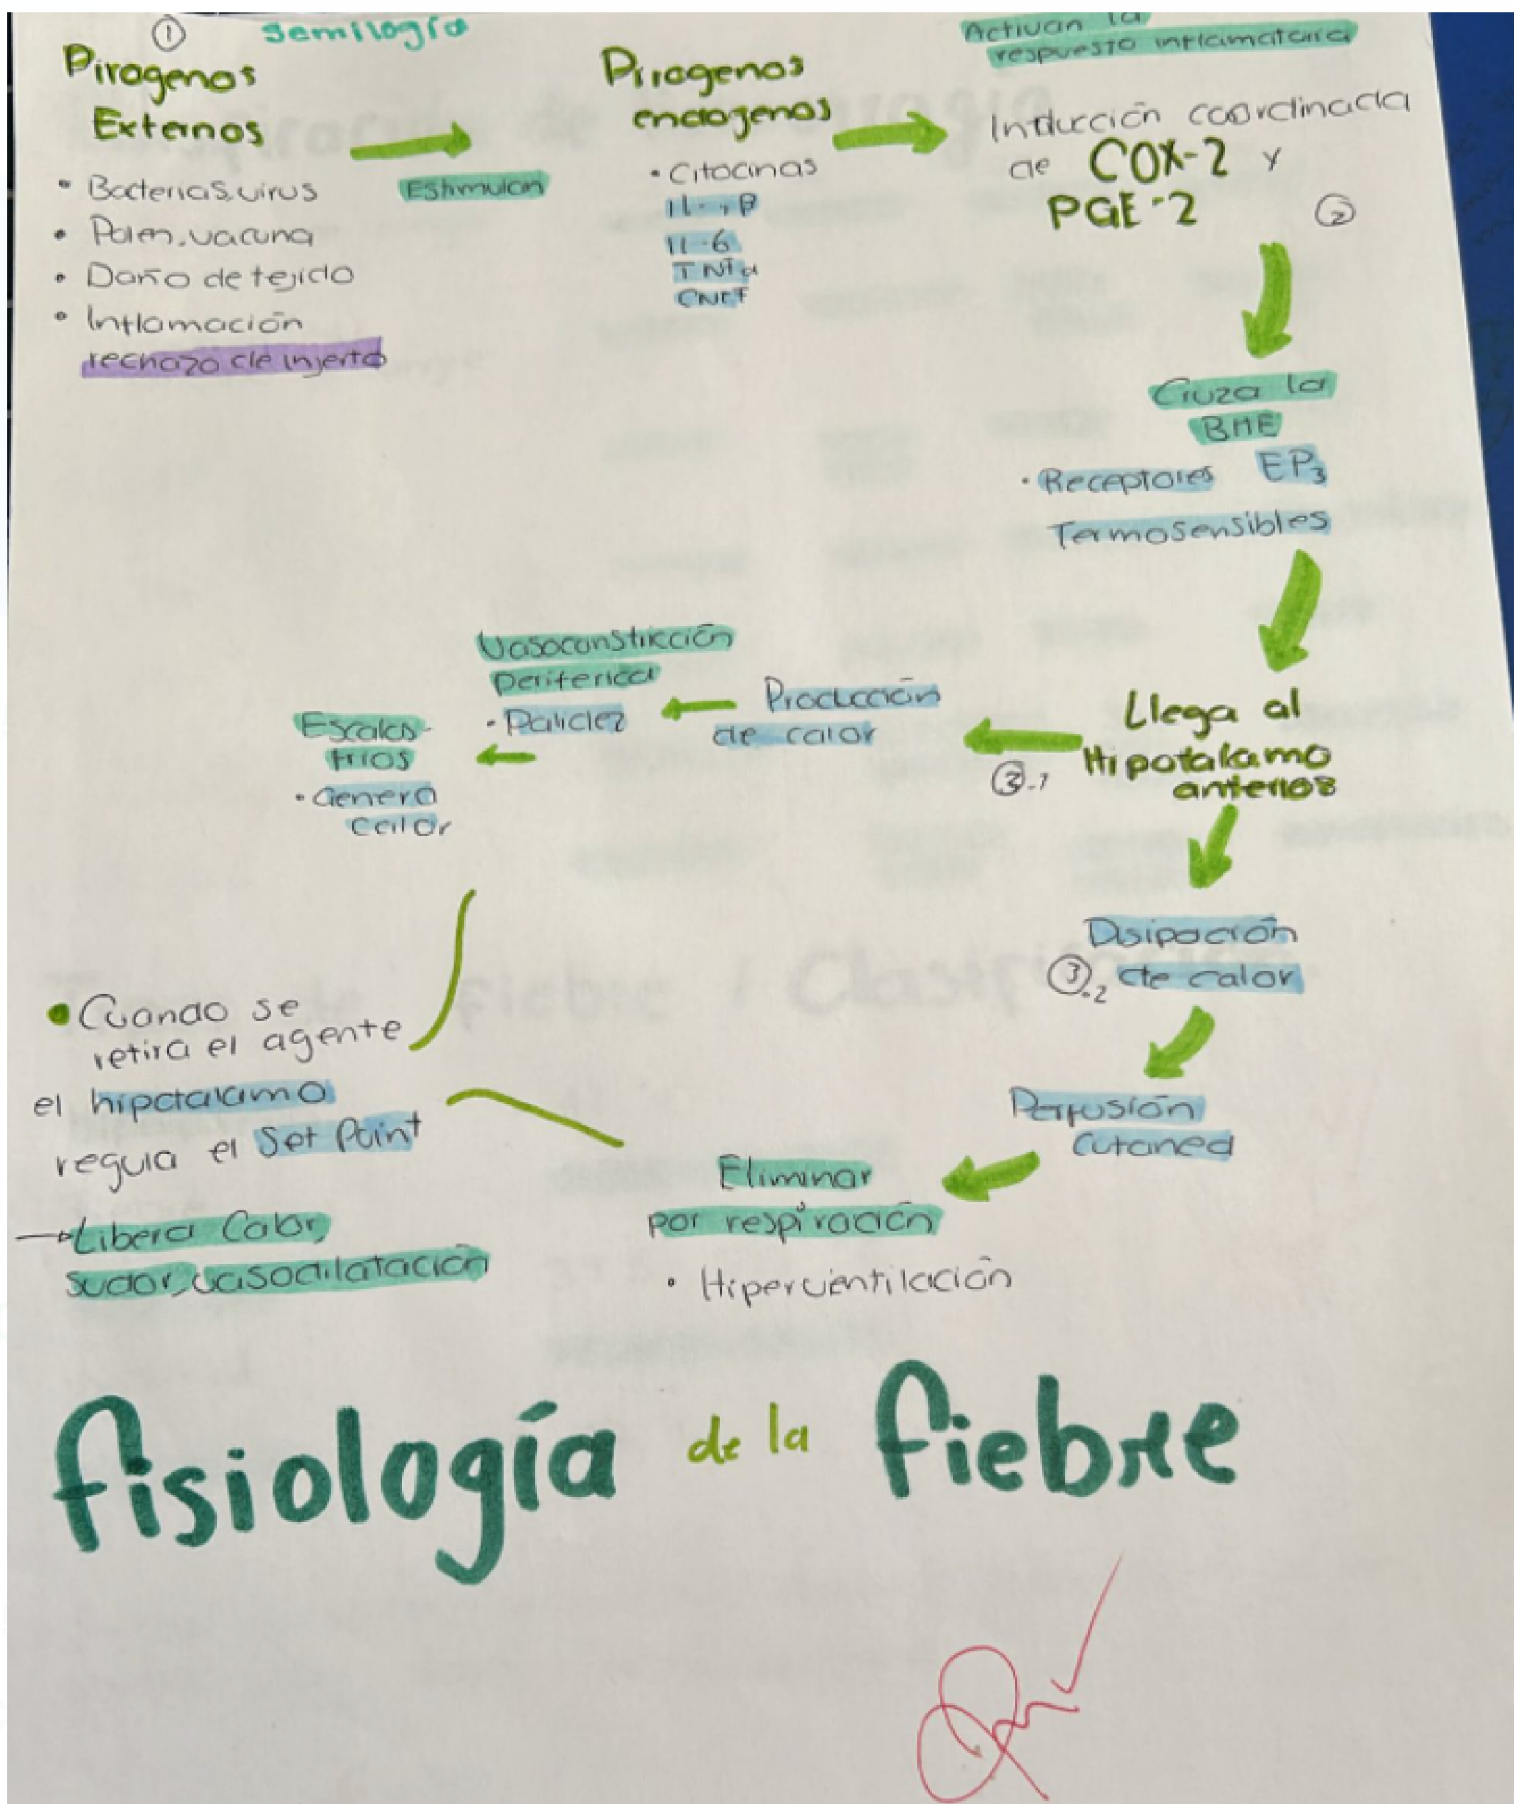 ①
Semilogía
Pirogenos
Externos
• Bacterias, virus
• Polen, vacuna
• Daño de tejido
• Inflamación
rechazo de injerto
Estimulan
Pirogenos
endogenos
• Citocinas
IL-1β
IL-6
TNFα
CNTF
Activan la
respuesta inflamatoria
Inducción coordinada
de COX-2 y
PGE-2
②
Cruza la
BHE
• Receptores EP3
Termosensibles
Llega al
Hipotalamo
anterior
③.1
Producción
de calor
Vasoconstricción
periferica
• Palidez
Escalos-
frios
• Genera
calor
Disipación
③.2 de calor
Perfusión
Cutanea
Eliminar
por respiración
• Hiperventilación
• Cuando se
retira el agente
el hipotalamo
regula el Set Point
→ Libera Calor,
sudor, vasodilatación
fisiología de la fiebre